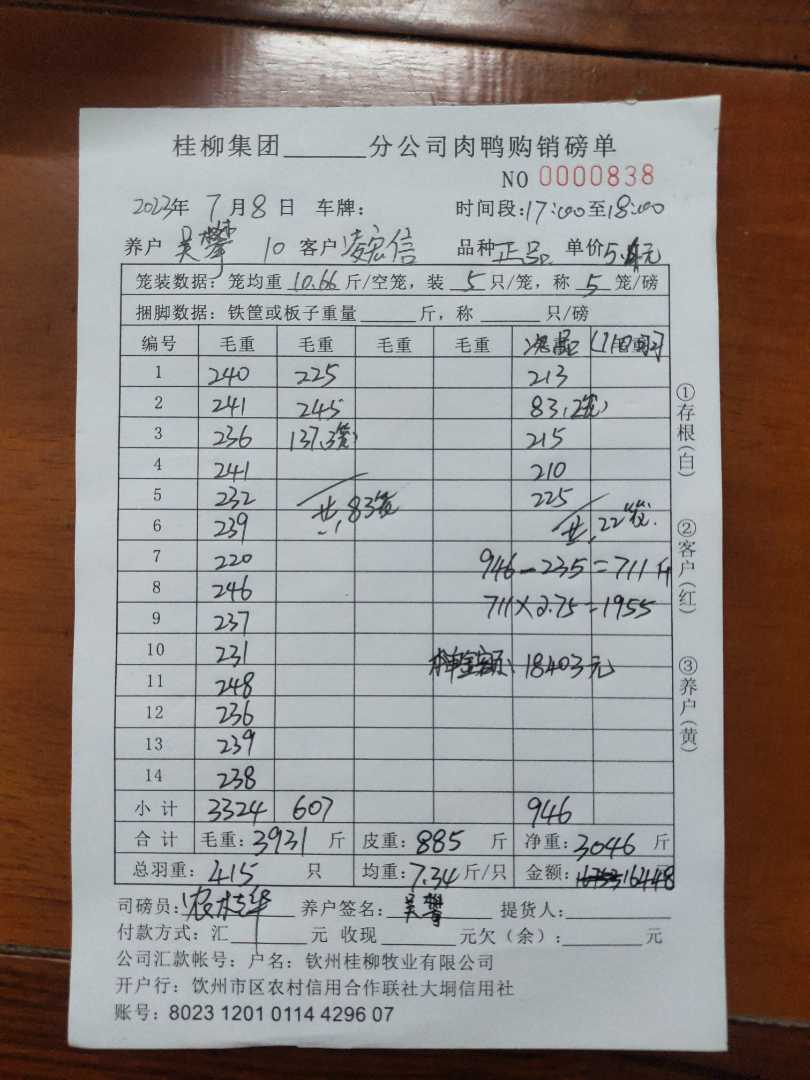 桂柳集团______分公司肉鸭购销磅单
NO 0000838
2023年 7月8日 车牌: 时间段:17:00至18:00
养户 吴攀 10 客户 凌宏信 品种 正品 单价5.4元
笼装数据: 笼均重 10.66 斤/空笼, 装 5 只/笼, 称 5 笼/磅
捆脚数据: 铁筐或板子重量______斤, 称______只/磅
编号 毛重 毛重 毛重 毛重
1 240 225 213
2 241 245 83,2笼
3 236 137.3笼 215
4 241 210
5 232 共,83笼 225
6 239 共,22笼.
7 220 946-235=711斤
8 246 711×2.75=1955
9 237
10 231 18403元
11 248
12 236
13 239
14 238
小计 3324 607 946
合计 毛重:3931 斤 皮重:885 斤 净重:3046 斤
总羽重: 415 只 均重:7.34斤/只 金额: 16448
司磅员: 养户签名: 吴攀 提货人:
付款方式: 汇______元 收现______元欠(余):______元
公司汇款帐号: 户名: 钦州桂柳牧业有限公司
开户行: 钦州市区农村信用合作联社大垌信用社
账号: 8023 1201 0114 4296 07
①存根(白)
②客户(红)
③养户(黄)